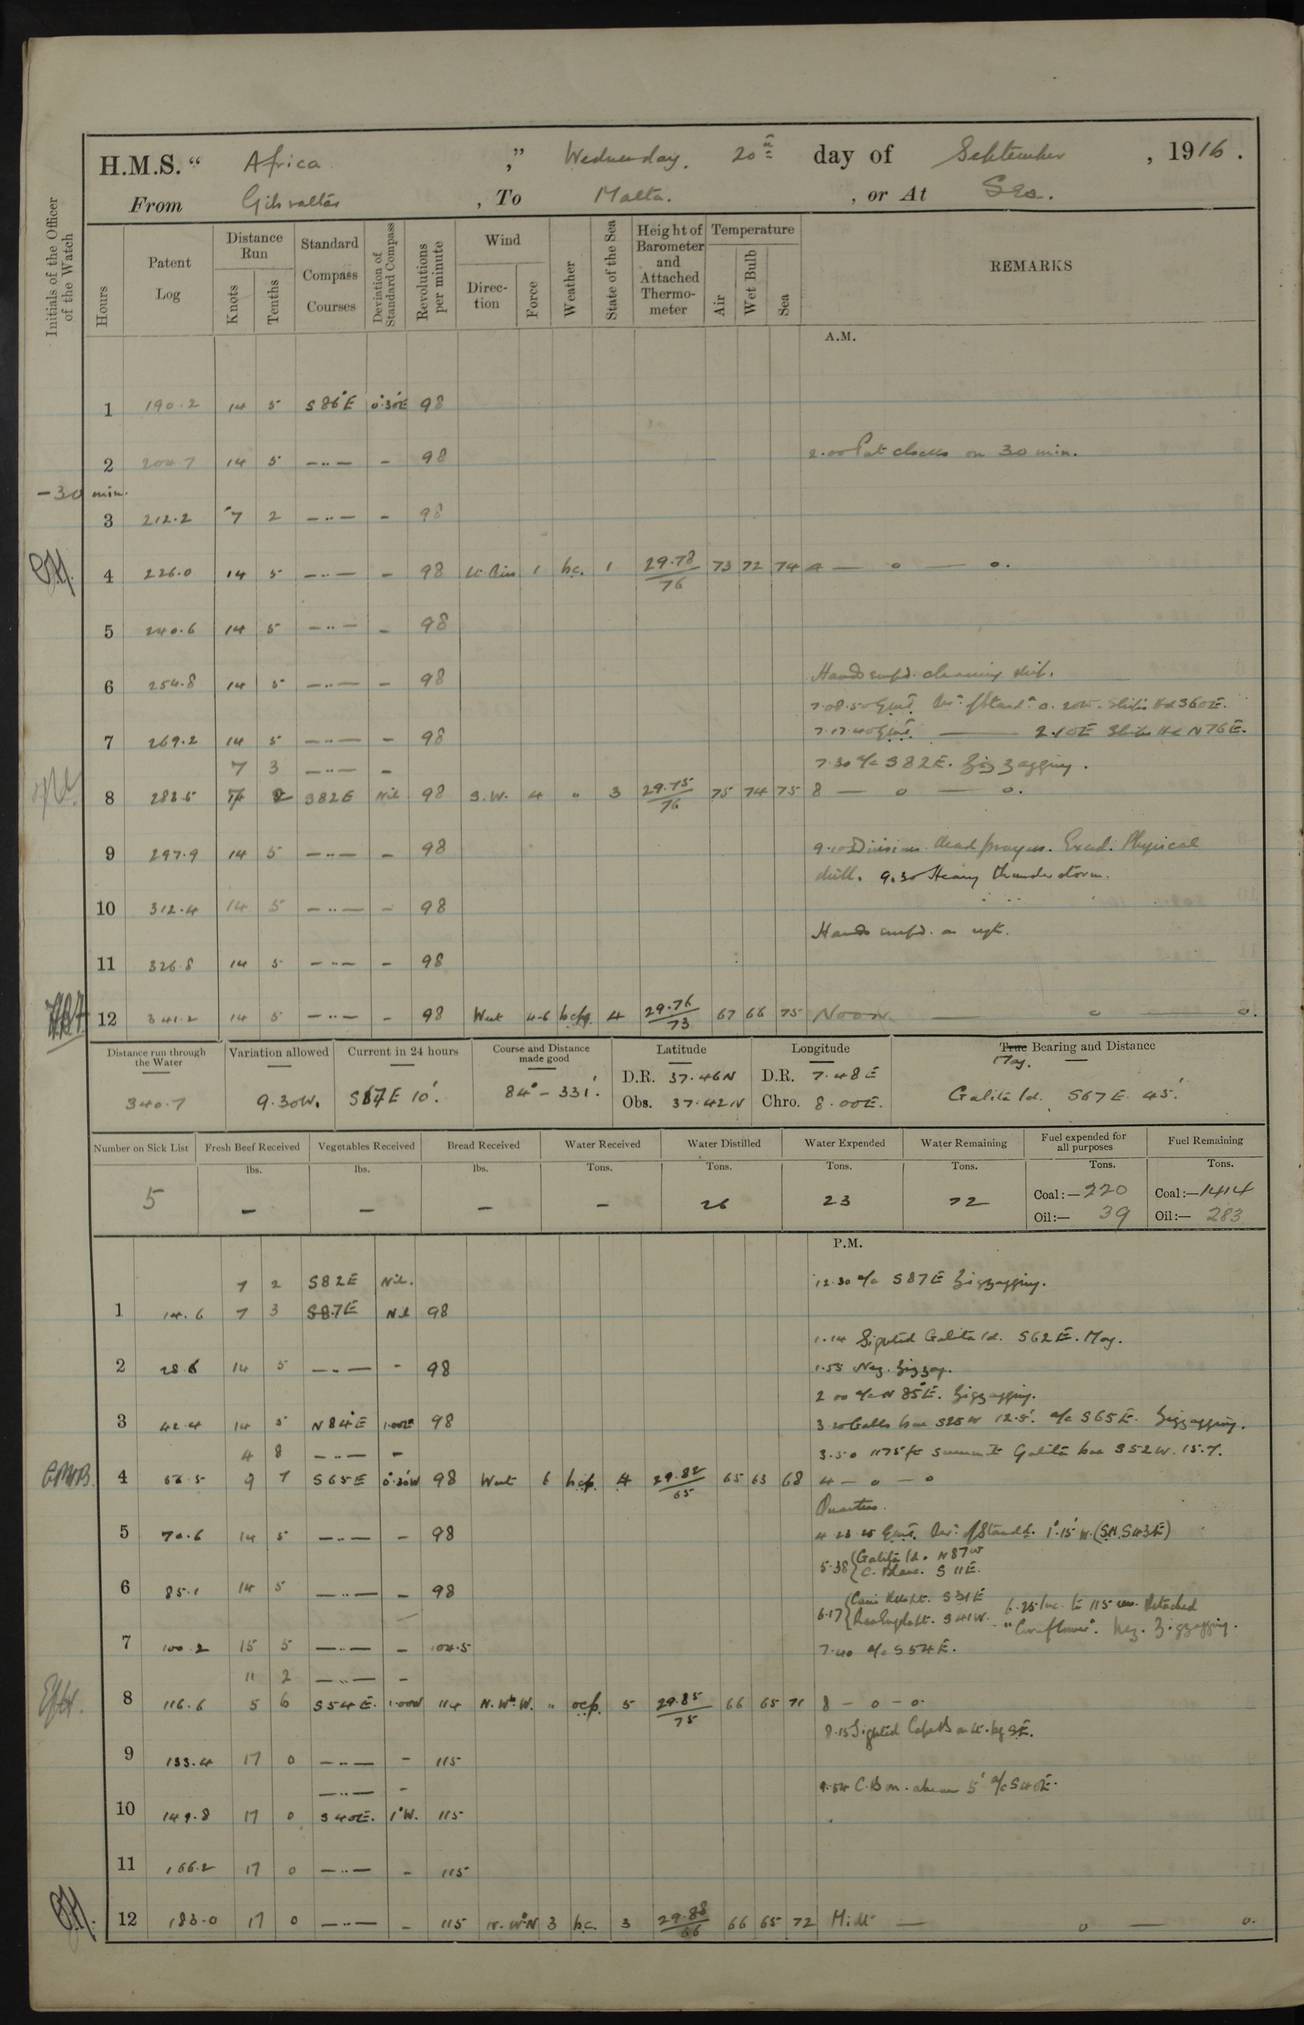 H.M.S. “ Africa ” Wednesday. 20th day of September , 1916.
From Gibraltar , To Malta. , or At Sea.
Initials of the Officer of the Watch
Hours
Patent Log
Distance Run
Knots
Tenths
Standard Compass Courses
Deviation of Standard Compass
Revolutions per minute
Wind
Direction
Force
Weather
State of the Sea
Height of Barometer and Attached Thermometer
Temperature
Air
Wet Bulb
Sea
REMARKS
A.M.
1 190.2 14 5 S 86°E 0°.30'E 98
2 204.7 14 5 — .. — - 98 2.00 Put clocks on 30 min.
-30 min.
3 212.2 7 2 — .. — - 98
4 226.0 14 5 — .. — - 98 Lt. Airs 1 b.c. 1 29.78/76 73 72 74 4 — o — o.
5 240.6 14 5 — .. — - 98
6 254.8 14 5 — .. — - 98 Hands empd. cleaning ship.
7.08.50 G.M.T. Dev: of Stand: 0.20W. Ship's Hd S60E.
7 269.2 14 5 — .. — - 98 7.17.40 G.M.T. — 2.10E Ship's Hd N76E.
7 3 — .. — - 7.30 a/c S82E. Zigzagging.
8 283.5 7 2 S82E Nil 98 S.W. 4 " 3 29.75/76 75 74 75 8 — o — o.
9 297.9 14 5 — .. — - 98 9.10 Divisions. Read prayers. Exed. Physical
drill. 9.30 Heavy thunder storm.
10 312.4 14 5 — .. — - 98
Hands empd. a. reqte.
11 326.8 14 5 — .. — - 98
12 341.2 14 5 — .. — - 98 West 4-6 b.c.p.q. 4 29.76/73 67 66 75 Noon — o — o.
Distance run through the Water
340.7
Variation allowed
9.30W.
Current in 24 hours
S67E 10'.
Course and Distance made good
84° - 331'.
Latitude
D.R. 37.46N
Obs. 37.42N
Longitude
D.R. 7.48E
Chro. 8.00E.
True Mag. Bearing and Distance
Galita Id. S67E. 45'.
Number on Sick List
5
Fresh Beef Received lbs.
-
Vegetables Received lbs.
-
Bread Received lbs.
-
Water Received Tons.
-
Water Distilled Tons.
26
Water Expended Tons.
23
Water Remaining Tons.
72
Fuel expended for all purposes Tons.
Coal:— 220
Oil:— 39
Fuel Remaining Tons.
Coal:— 1414
Oil:— 283
P.M.
7 2 S82E Nil. 12.30 a/c S87E Zigzagging.
1 14.6 7 3 S87E Nil 98
1.14 Sighted Galita Id. S62E. Mag.
2 28.6 14 5 — .. — - 98 1.55 Neg. Zigzag.
2.00 a/c N85°E. Zigzagging.
3 42.4 14 5 N84°E 1.00E 98 3.20 Galls bore S25W 12.5'. a/c S65E. Zigzagging.
4 8 — .. — - 3.50 1175ft summit Galita bore S52W. 15.7.
4 56.5 9 7 S65E 0°.30'W 98 West 6 b.c.p. 4 29.82/65 65 63 68 4 — o — o
Quarters.
5 70.6 14 5 — .. — - 98 4.23.25 G.M.T. Dev: of Stand. 1°.15'W. (S.H. S43E)
5.38 {Galita Id. N87W
C. Blanc. S11E.
6 85.1 14 5 — .. — - 98
6.17 {Cani Rks Lt. S31E 6.25 Inc. to 115 revs. Detached
Ras Engelah Lt. S41W. "Cornflower". Neg. Zigzagging.
7 100.2 15 5 — .. — - 104.5 7.40 a/c S54E.
11 2 — .. — -
8 116.6 5 6 S54E. 1.00W 114 N.W'.W. " o.c.p. 5 29.85/75 66 65 71 8 — o — o.
8.15 Sighted Cape B on Lt. bg SE.
9 133.4 17 0 — .. — - 115
— .. — - 9.54 C. Bon. abeam 5' a/c S40E.
10 149.8 17 0 S40E. 1°W. 115
11 166.2 17 0 — .. — - 115
12 183.0 17 0 — .. — - 115 N.W'N 3 b.c. 3 29.88/66 66 65 72 Midt — o — o.